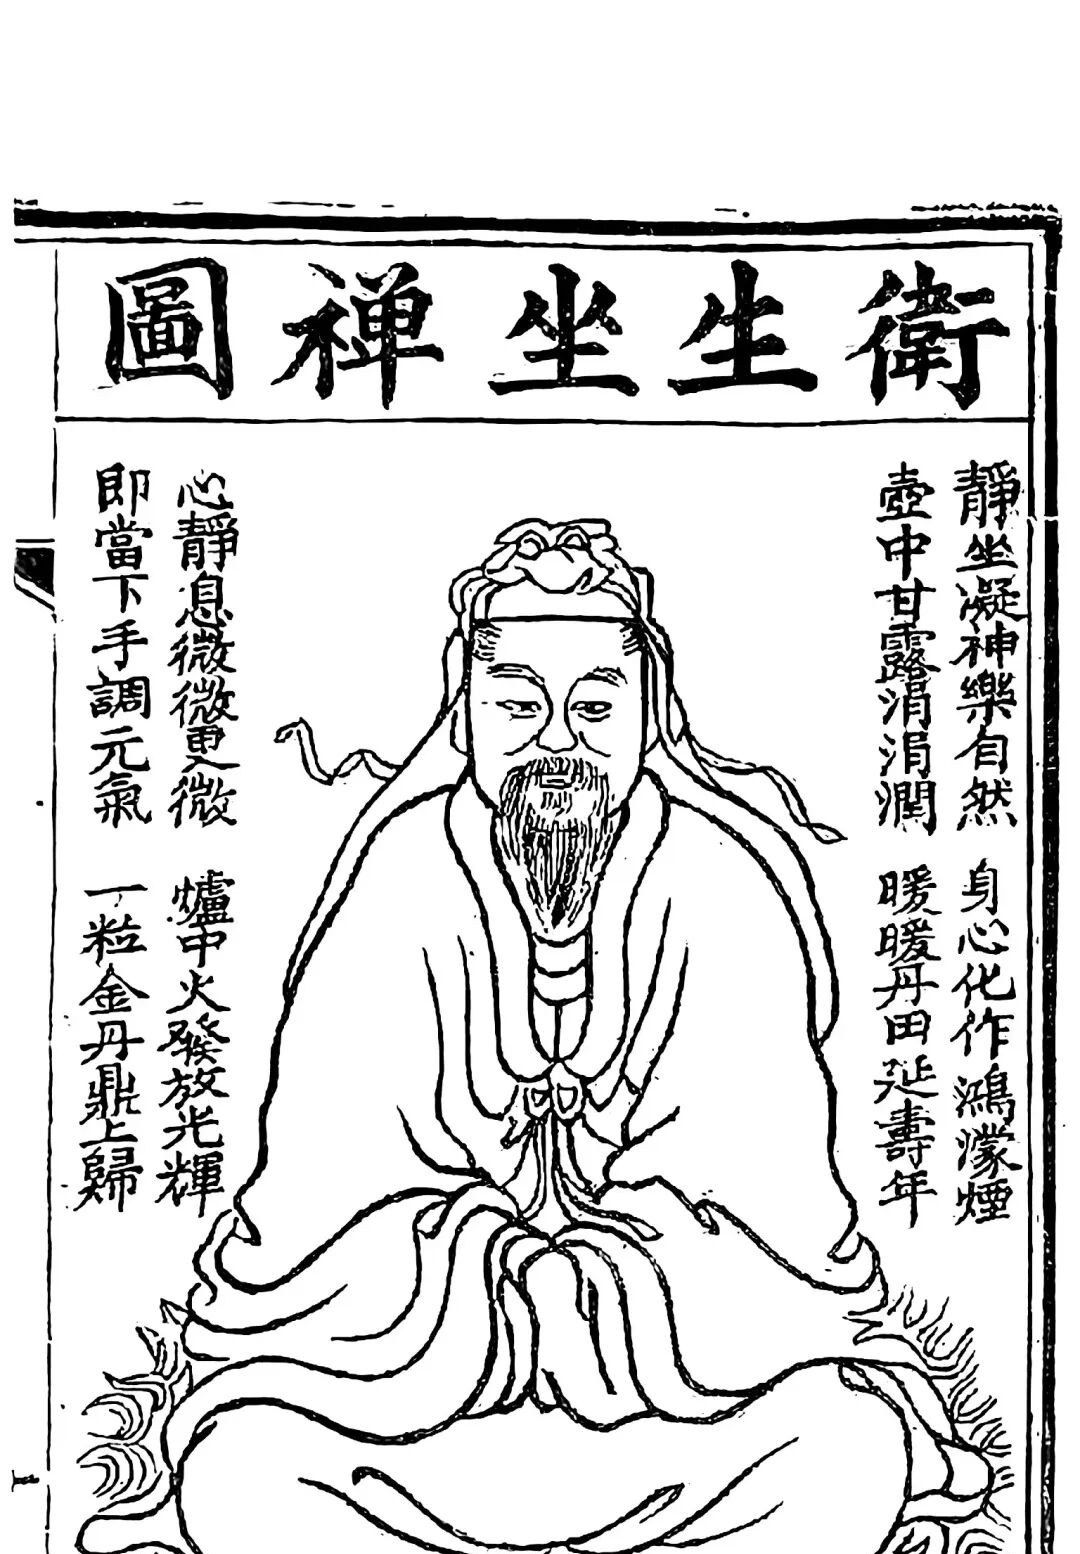 衛生坐禅圖
靜坐凝神樂自然
身心化作鴻濛煙
壺中甘露涓涓潤
暖暖丹田延壽年
心靜息微微更微
爐中火發放光輝
即當下手調元氣
一粒金丹鼎上歸